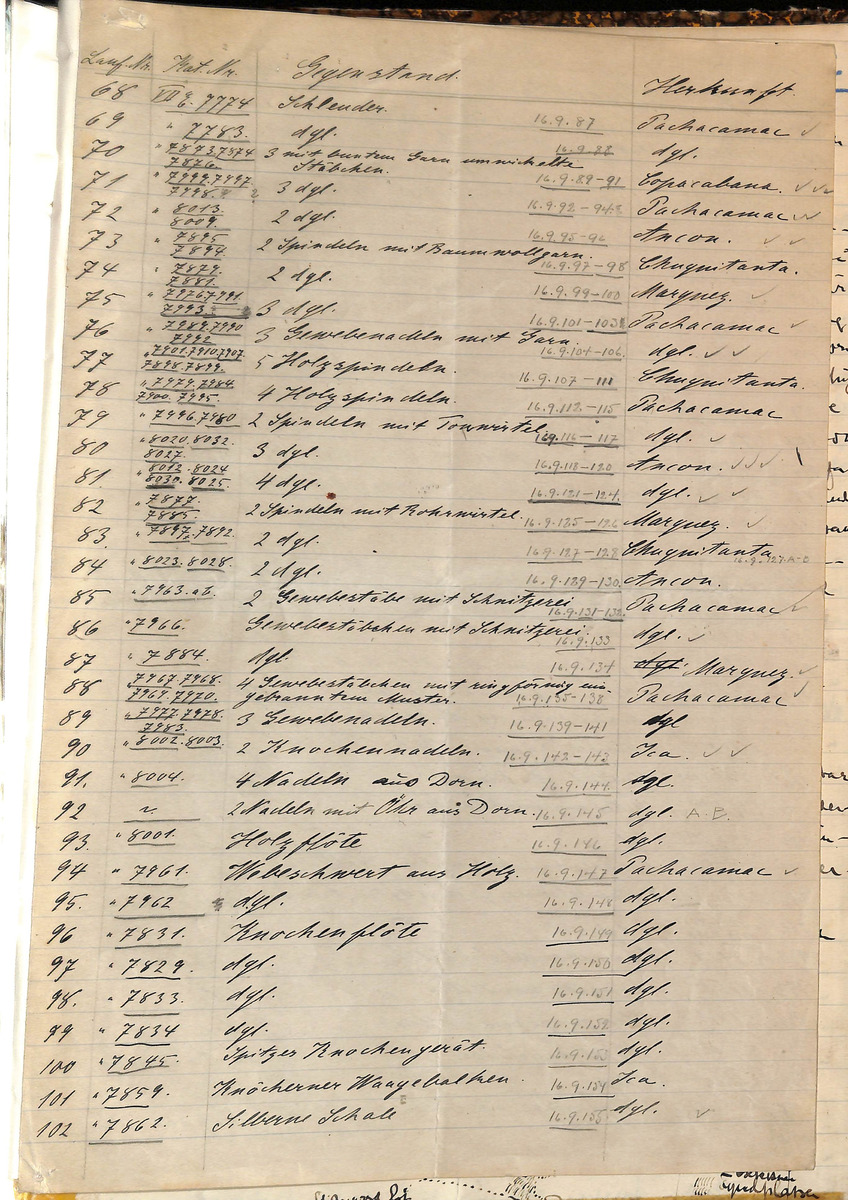 Lauf. Nr. Kat. Nr. Gegenstand. Herkunft.
68 7774 Schleuder. 16.9.87 Pachacamac
69 " 7783. dgl. 16.9.88 dgl.
70 " 7873.7874 3 mit buntem Garn umwickelte
7876. Stäbchen. 16.9.89-91 Copacabana.
71 " 7999.7997
7998. 3 dgl. 16.9.92-94 Pachacamac
72 " 8013.
8009. 2 dgl. 16.9.95-96 Ancon.
73 " 7895
7894. 2 Spindeln mit Baumwollgarn. 16.9.97-98 Chuquitanta.
74 " 7879.
7881. 2 dgl. 16.9.99-100 Marquez.
75 " 7976.7991.
7993 3 dgl. 16.9.101-103 Pachacamac
76 " 7989.7990
7992 3 Gewebenadeln mit Garn. 16.9.104-106. dgl.
77 " 7901.7910.7907.
7898.7899. 5 Holzspindeln. 16.9.107-111 Chuquitanta.
78 " 7979.7984
7900.7995. 4 Holzspindeln. 16.9.112-115 Pachacamac
79 " 7996.7980 2 Spindeln mit Tonwirtel. 16.9.116-117 dgl.
80 " 8020.8032.
8027. 3 dgl. 16.9.118-120 Ancon.
81 " 8012.8024
8030.8025. 4 dgl. 16.9.121-124 dgl.
82 " 7877.
7885. 2 Spindeln mit Rohrwirtel. 16.9.125-126 Marquez.
83 " 7897.7892. 2 dgl. 16.9.127-128 Chuquitanta
16.9.127.A-B
84 " 8023.8028. 2 dgl. 16.9.129-130. Ancon.
85 " 7963. a b. 2 Gewebestäbe mit Schnitzerei 16.9.131-132 Pachacamac
86 " 7966. Gewebestäbchen mit Schnitzerei. 16.9.133 dgl.
87 " 7884. dgl. 16.9.134 dgl. Marquez.
88 7967.7968. 4 Gewebestäbchen mit ringförmig ein-
7969.7970. gebranntem Muster. 16.9.135-138 Pachacamac
89 " 7977.7978.
7983. 3 Gewebenadeln. 16.9.139-141 dgl
90 " 8002.8003. 2 Knochennadeln. 16.9.142-143 Ica
91. " 8004. 4 Nadeln aus Dorn. 16.9.144. dgl.
92 " 2 Nadeln mit Öhr aus Dorn. 16.9.145 dgl. A.B.
93. " 8001. Holzflöte 16.9.146 dgl.
94 " 7961. Webeschwert aus Holz. 16.9.147 Pachacamac
95. " 7962 dgl. 16.9.148 dgl.
96 " 7831. Knochenflöte 16.9.149 dgl.
97 " 7829. dgl. 16.9.150 dgl.
98. " 7833. dgl. 16.9.151 dgl.
99 " 7834 dgl. 16.9.152 dgl.
100 " 7845. Spitzes Knochengerät. 16.9.153 dgl.
101 " 7859. Knöcherner Waagebalken. 16.9.154 Ica.
102 " 7862. Silberne Schale 16.9.155 dgl.